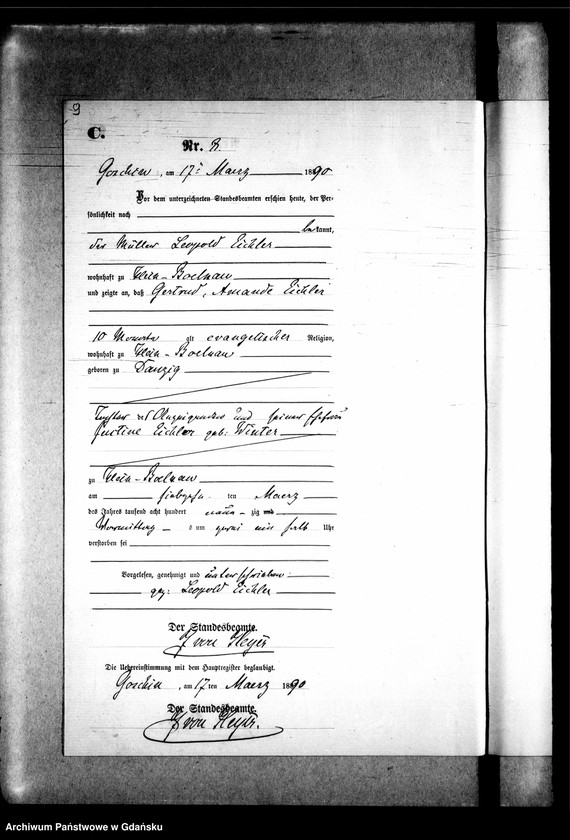 9
C.
Nr. 8.
Goschin, am 17ᵗ Maerz 1890
Vor dem unterzeichneten Standesbeamten erschien heute, der Per-
sönlichkeit nach
bekannt,
der Müller Leopold Eichler
wohnhaft zu Klein-Boelkau
und zeigte an, daß Gertrud, Amande Eichler
10 Monate alt evangelischer Religion,
wohnhaft zu Klein-Boelkau
geboren zu Danzig
Tochter des Anzeigenden und seiner Ehefrau
Justine Eichler geb: Winter
zu Klein-Boelkau
am siebzehn ten Maerz
des Jahres tausend acht hundert neun-zig
Vormittag s um halb Uhr
verstorben sei
Vorgelesen, genehmigt und unterschrieben:
gez: Leopold Eichler
Der Standesbeamte.
von Heyer
Die Uebereinstimmung mit dem Hauptregister beglaubigt.
Goschin, am 17 ten Maerz 1890
Der Standesbeamte.
von Heyer.
Archiwum Państwowe w Gdańsku